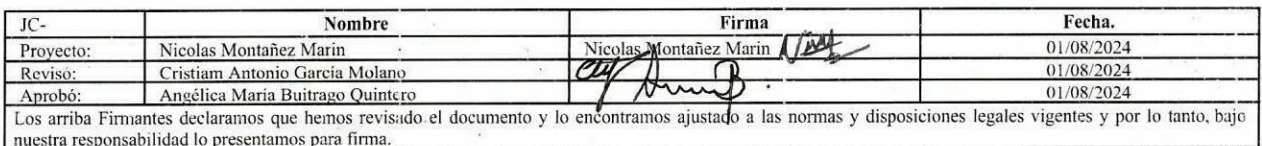 JC- Nombre Firma Fecha.
Proyecto: Nicolas Montañez Marin Nicolas Montañez Marin 01/08/2024
Revisó: Cristiam Antonio García Molano 01/08/2024
Aprobó: Angélica María Buitrago Quintero 01/08/2024
Los arriba Firmantes declaramos que hemos revisado el documento y lo encontramos ajustado a las normas y disposiciones legales vigentes y por lo tanto, bajo
nuestra responsabilidad lo presentamos para firma.